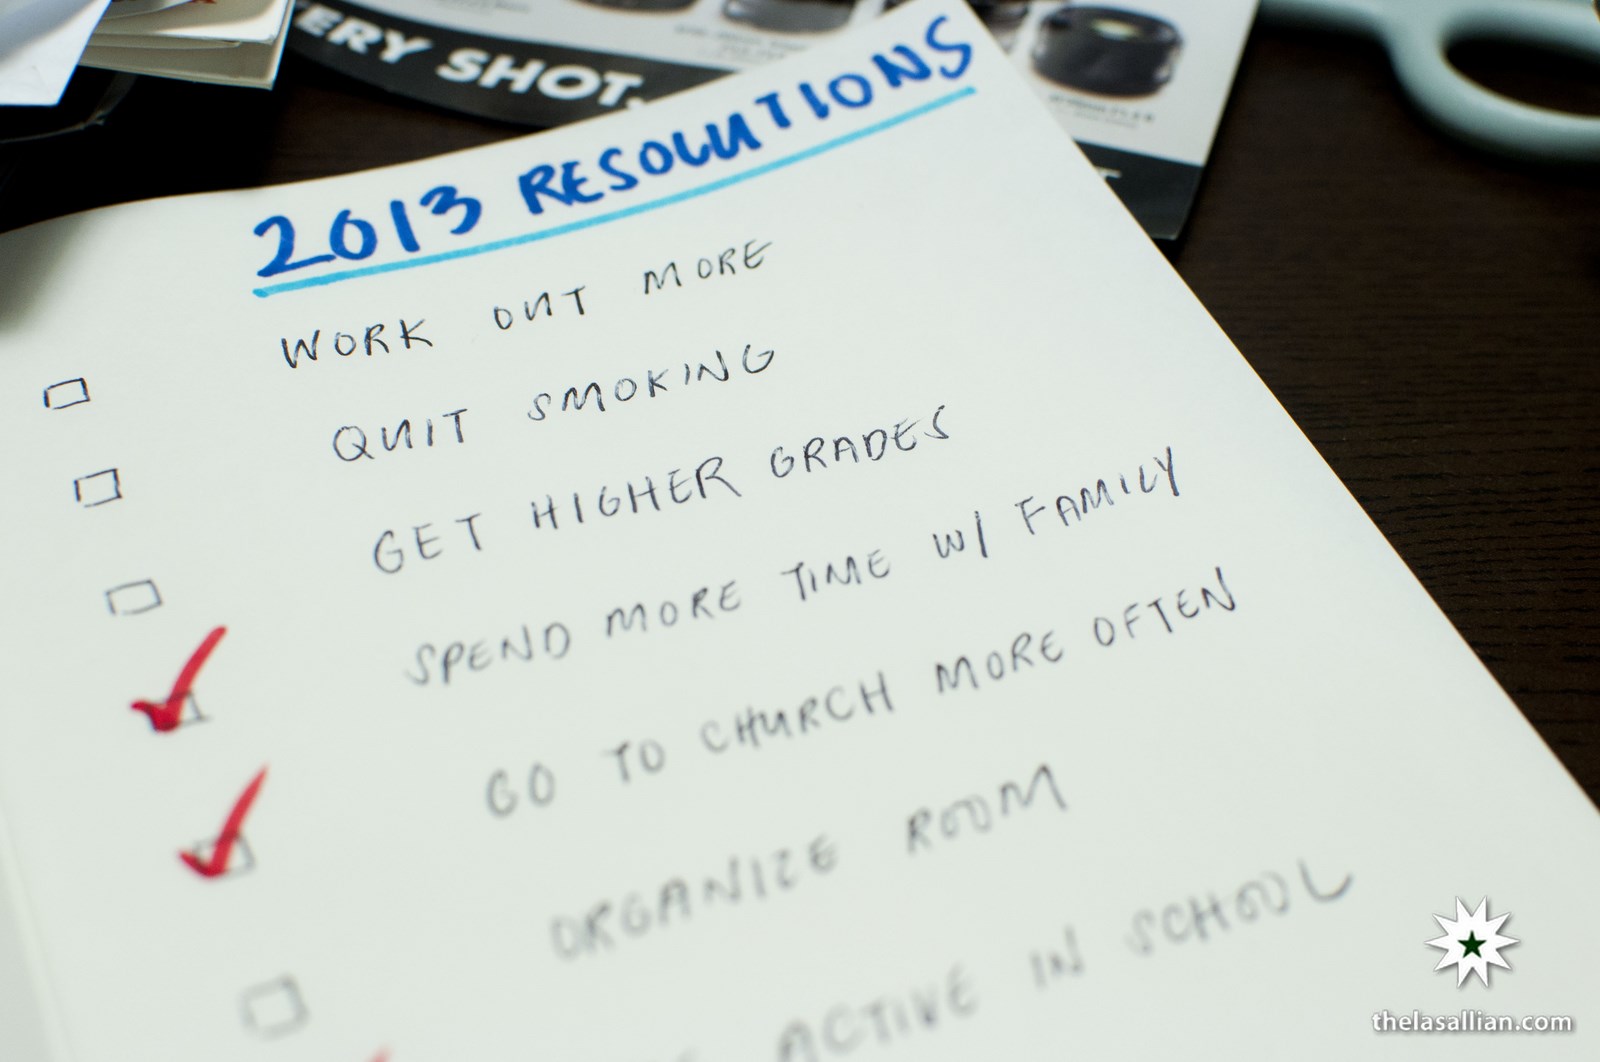 ERY SHOT.
2013 RESOLUTIONS
WORK OUT MORE
QUIT SMOKING
GET HIGHER GRADES
SPEND MORE TIME W/ FAMILY
GO TO CHURCH MORE OFTEN
ORGANIZE ROOM
ACTIVE IN SCHOOL
thelasallian.com